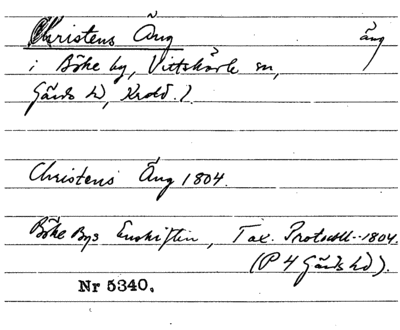 Christens Äng äng
i Böke by, Vittskövle sn,
Gärds hd, Krstd. l.
Christens Äng 1804.
Böke Bys Enskiften, Tax. Protocoll 1804.
(P 4 Gärds hd).
Nr 5340.